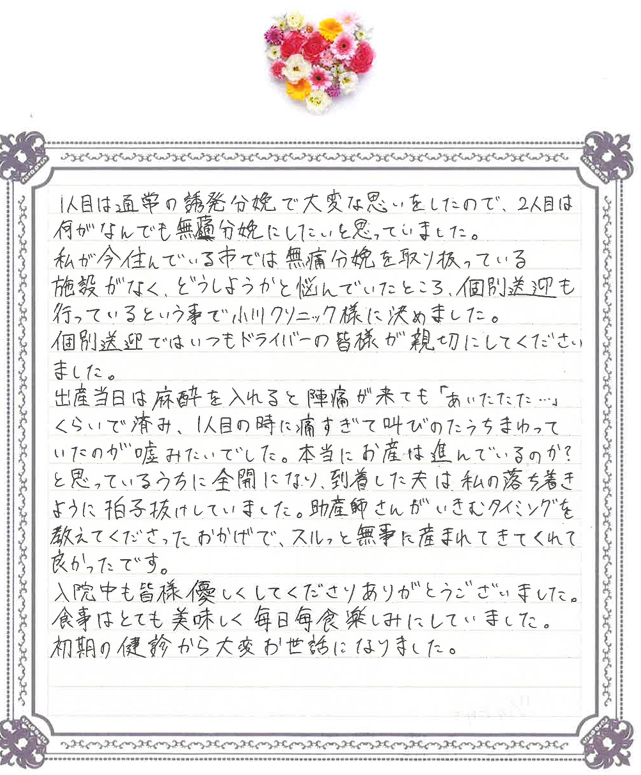 1人目は通常の誘発分娩で大変な思いをしたので、2人目は
何がなんでも無痛分娩にしたいと思っていました。
私が今住んでいる市では無痛分娩を取り扱っている
施設がなく、どうしようかと悩んでいたところ、個別送迎も
行っているという事で小川クリニック様に決めました。
個別送迎ではいつもドライバーの皆様が親切にしてください
ました。
出産当日は麻酔を入れると陣痛が来ても「あいたたた…」
くらいで済み、1人目の時に痛すぎて叫びのたうちまわって
いたのが嘘みたいでした。本当にお産は進んでいるのか?
と思っているうちに全開になり、到着した夫は私の落ち着き
ように拍子抜けしていました。助産師さんがいきむタイミングを
教えてくださったおかげで、スルッと無事に産まれてきてくれて
良かったです。
入院中も皆様優しくしてくださりありがとうございました。
食事はとても美味しく毎日毎食楽しみにしていました。
初期の健診から大変お世話になりました。